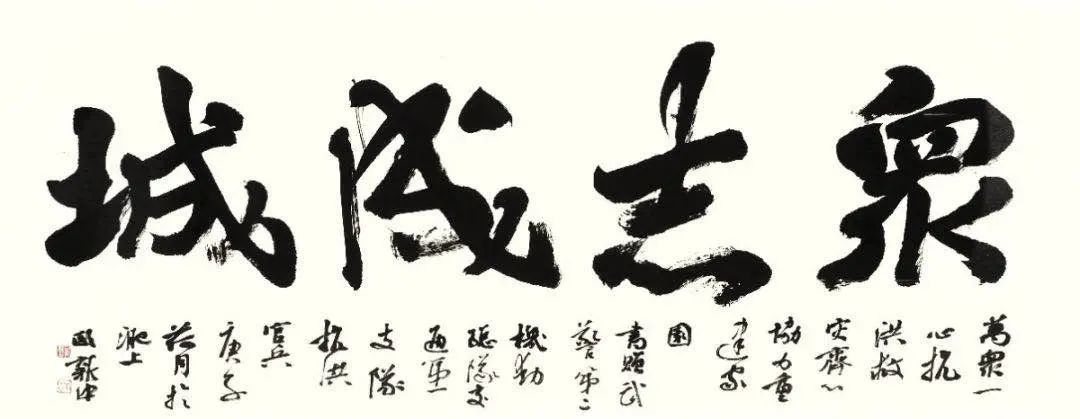 眾志成城
萬眾一
心抗
洪救
灾齊心
協力重
建家
園
書贈武
警第二
機動
總隊交
通第一
支隊
抗洪
官兵
庚子
荷月於
淝上